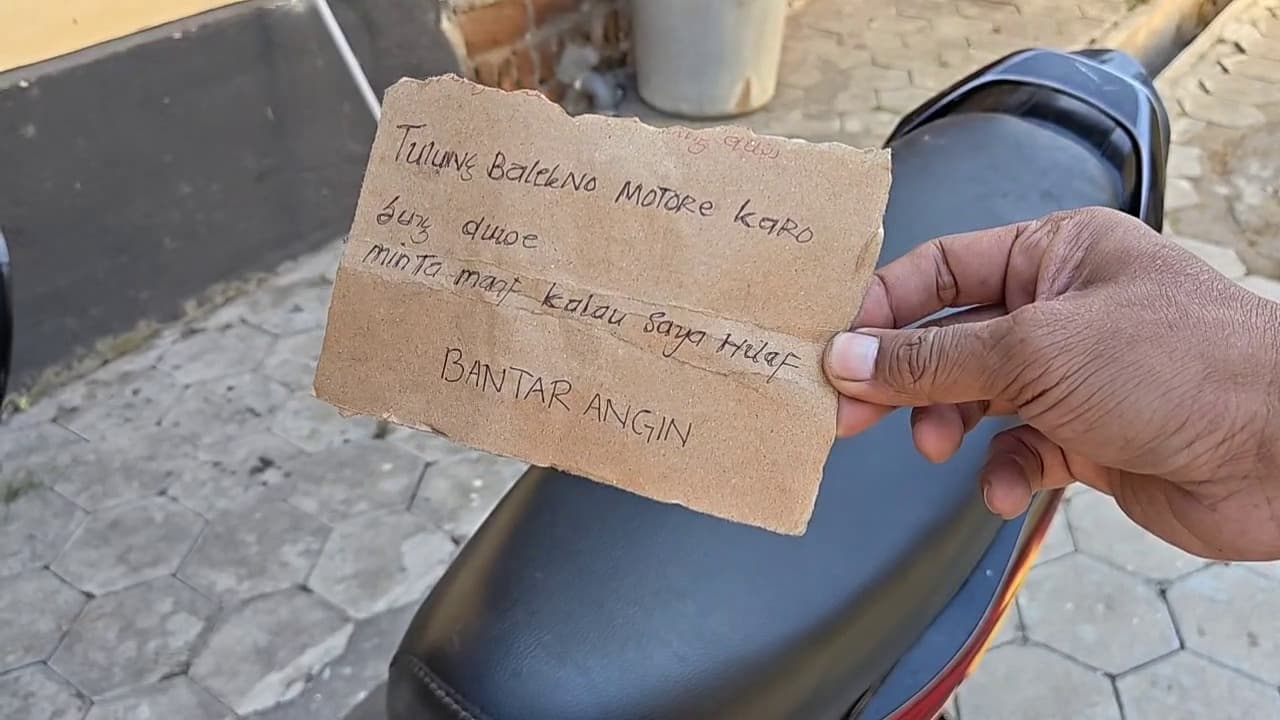 Tulung Balekno motore karo
sing duwe
minta maaf kalau saya Hilaf
BANTAR ANGIN